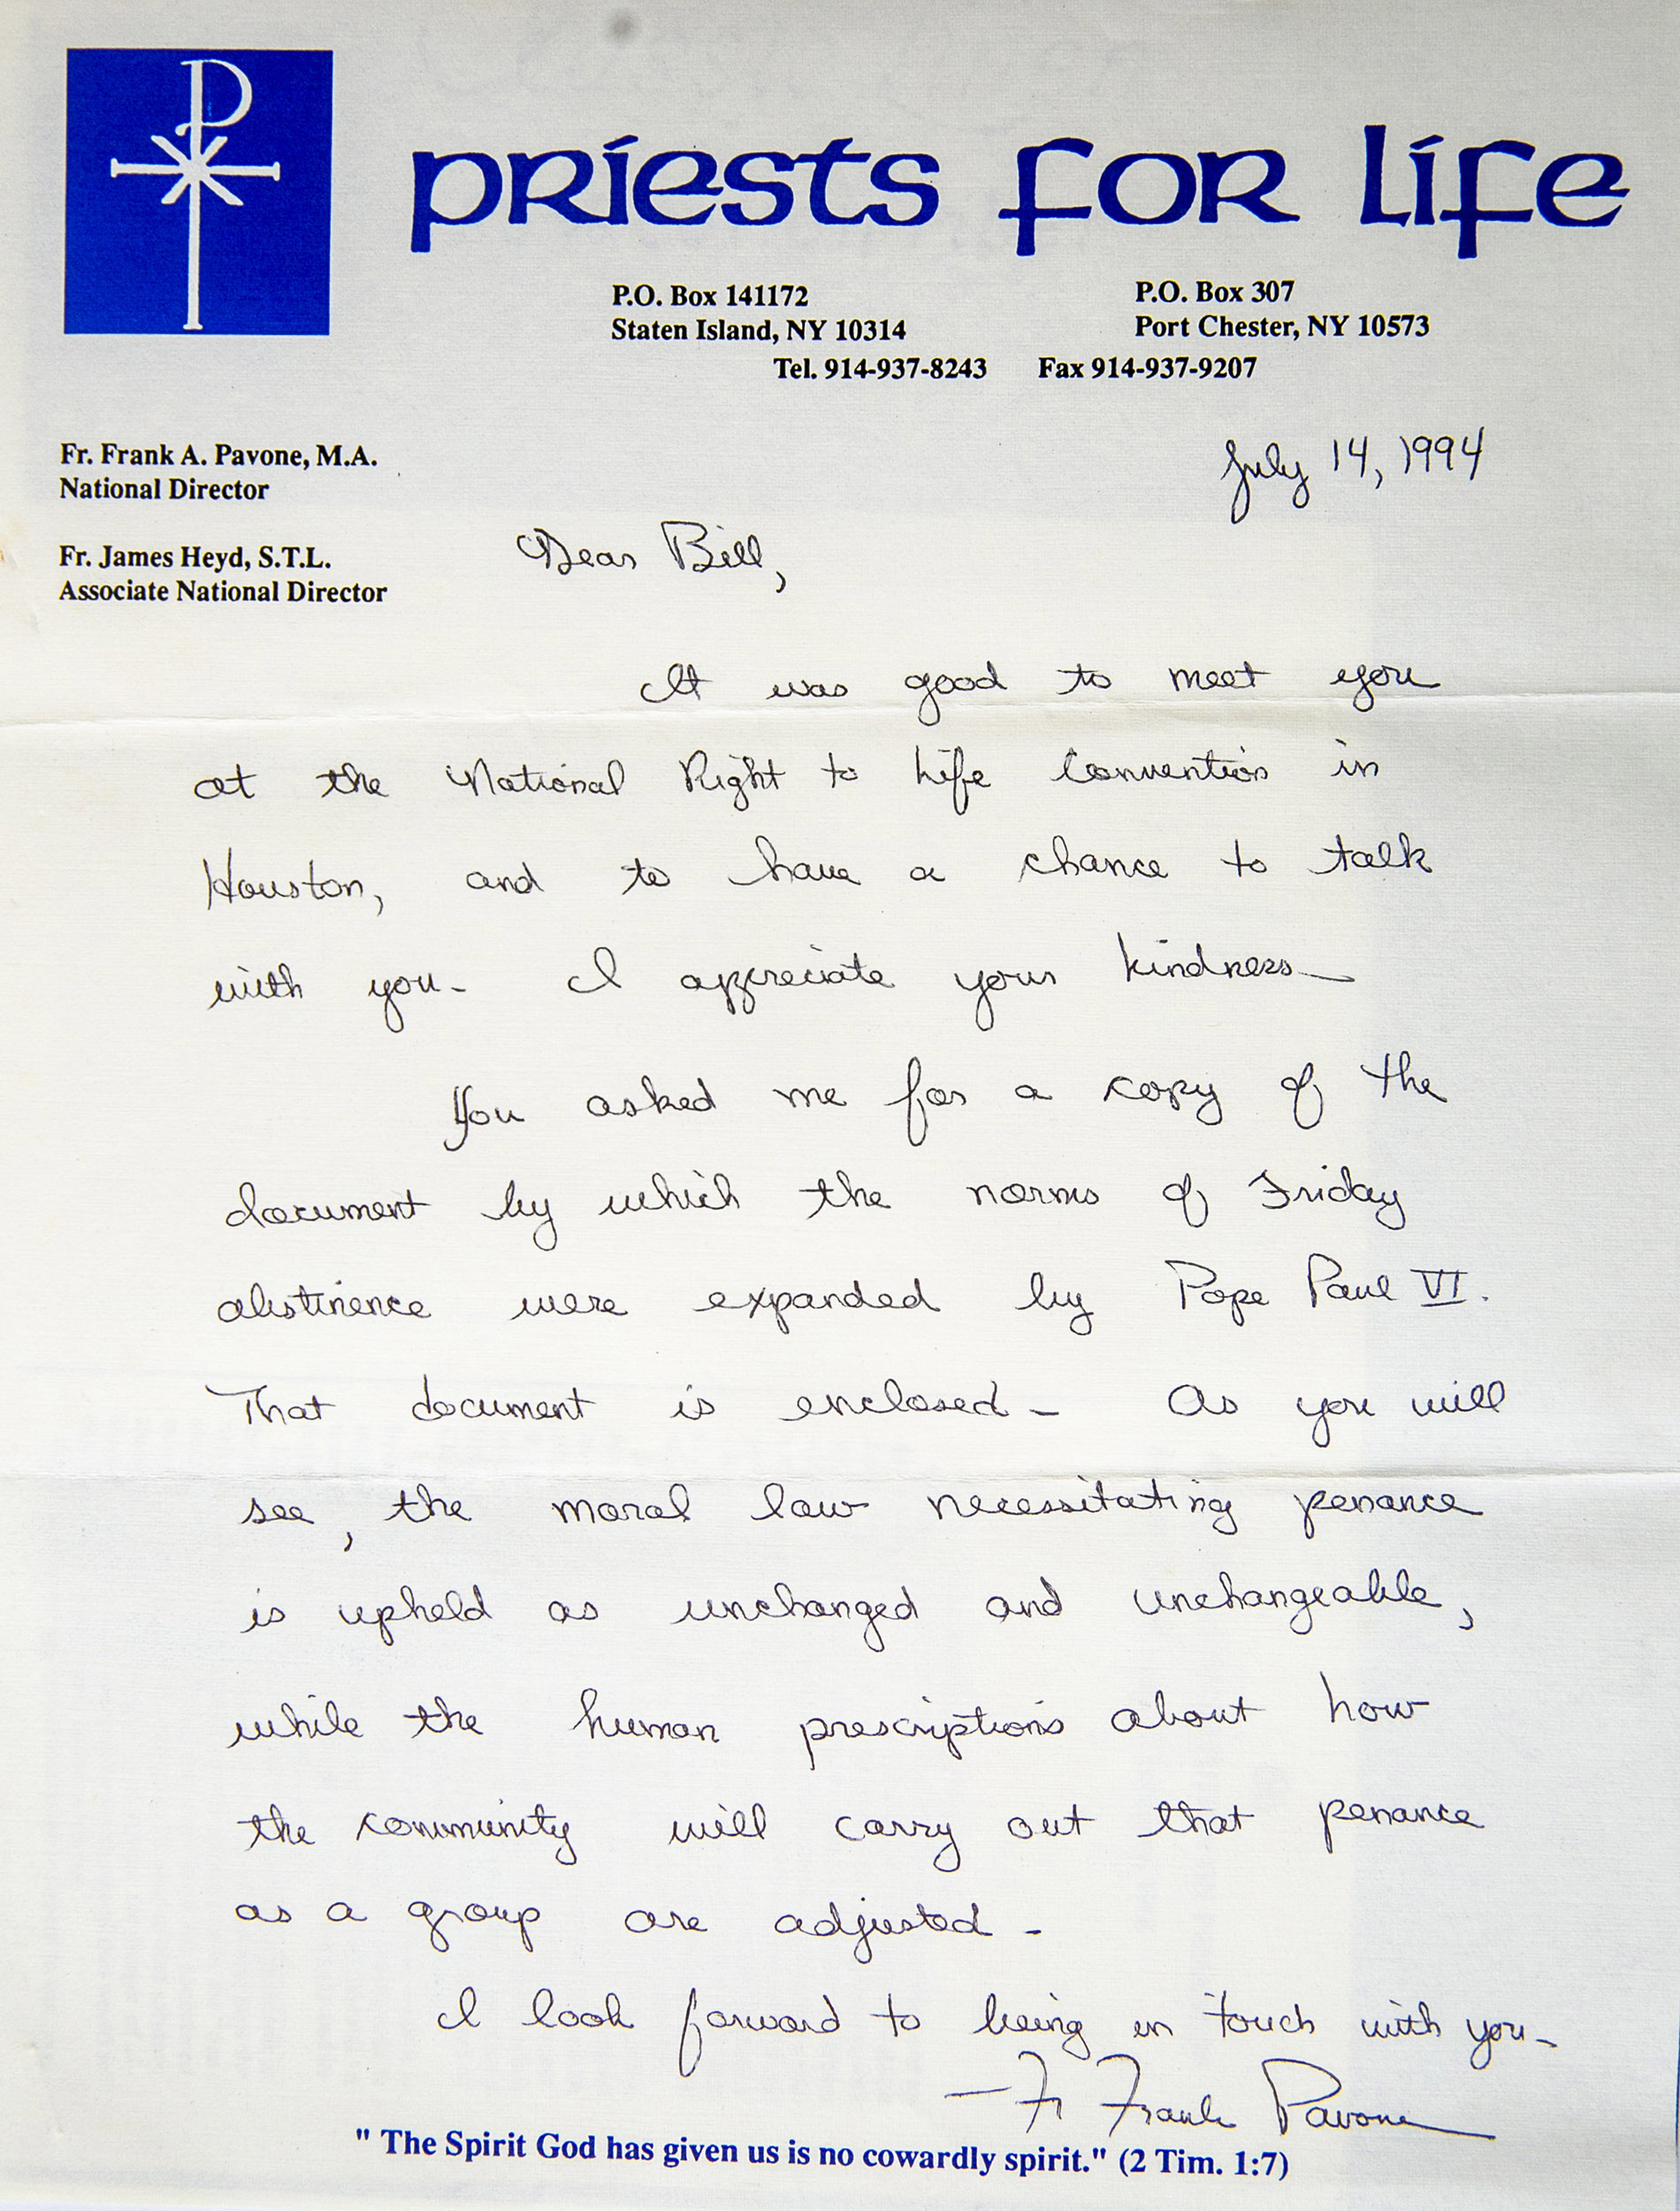 priests for life
P.O. Box 141172
Staten Island, NY 10314
P.O. Box 307
Port Chester, NY 10573
Tel. 914-937-8243 Fax 914-937-9207
Fr. Frank A. Pavone, M.A.
National Director
Fr. James Heyd, S.T.L.
Associate National Director
July 14, 1994
Dear Bill,
It was good to meet you
at the National Right to Life Convention in
Houston, and to have a chance to talk
with you. I appreciate your kindness.
You asked me for a copy of the
document by which the norms of Friday
abstinence were expanded by Pope Paul VI.
That document is enclosed. As you will
see, the moral law necessitating penance
is upheld as unchanged and unchangeable,
while the human prescriptions about how
the community will carry out that penance
as a group are adjusted.
I look forward to being in touch with you.
— Fr Frank Pavone
" The Spirit God has given us is no cowardly spirit." (2 Tim. 1:7)